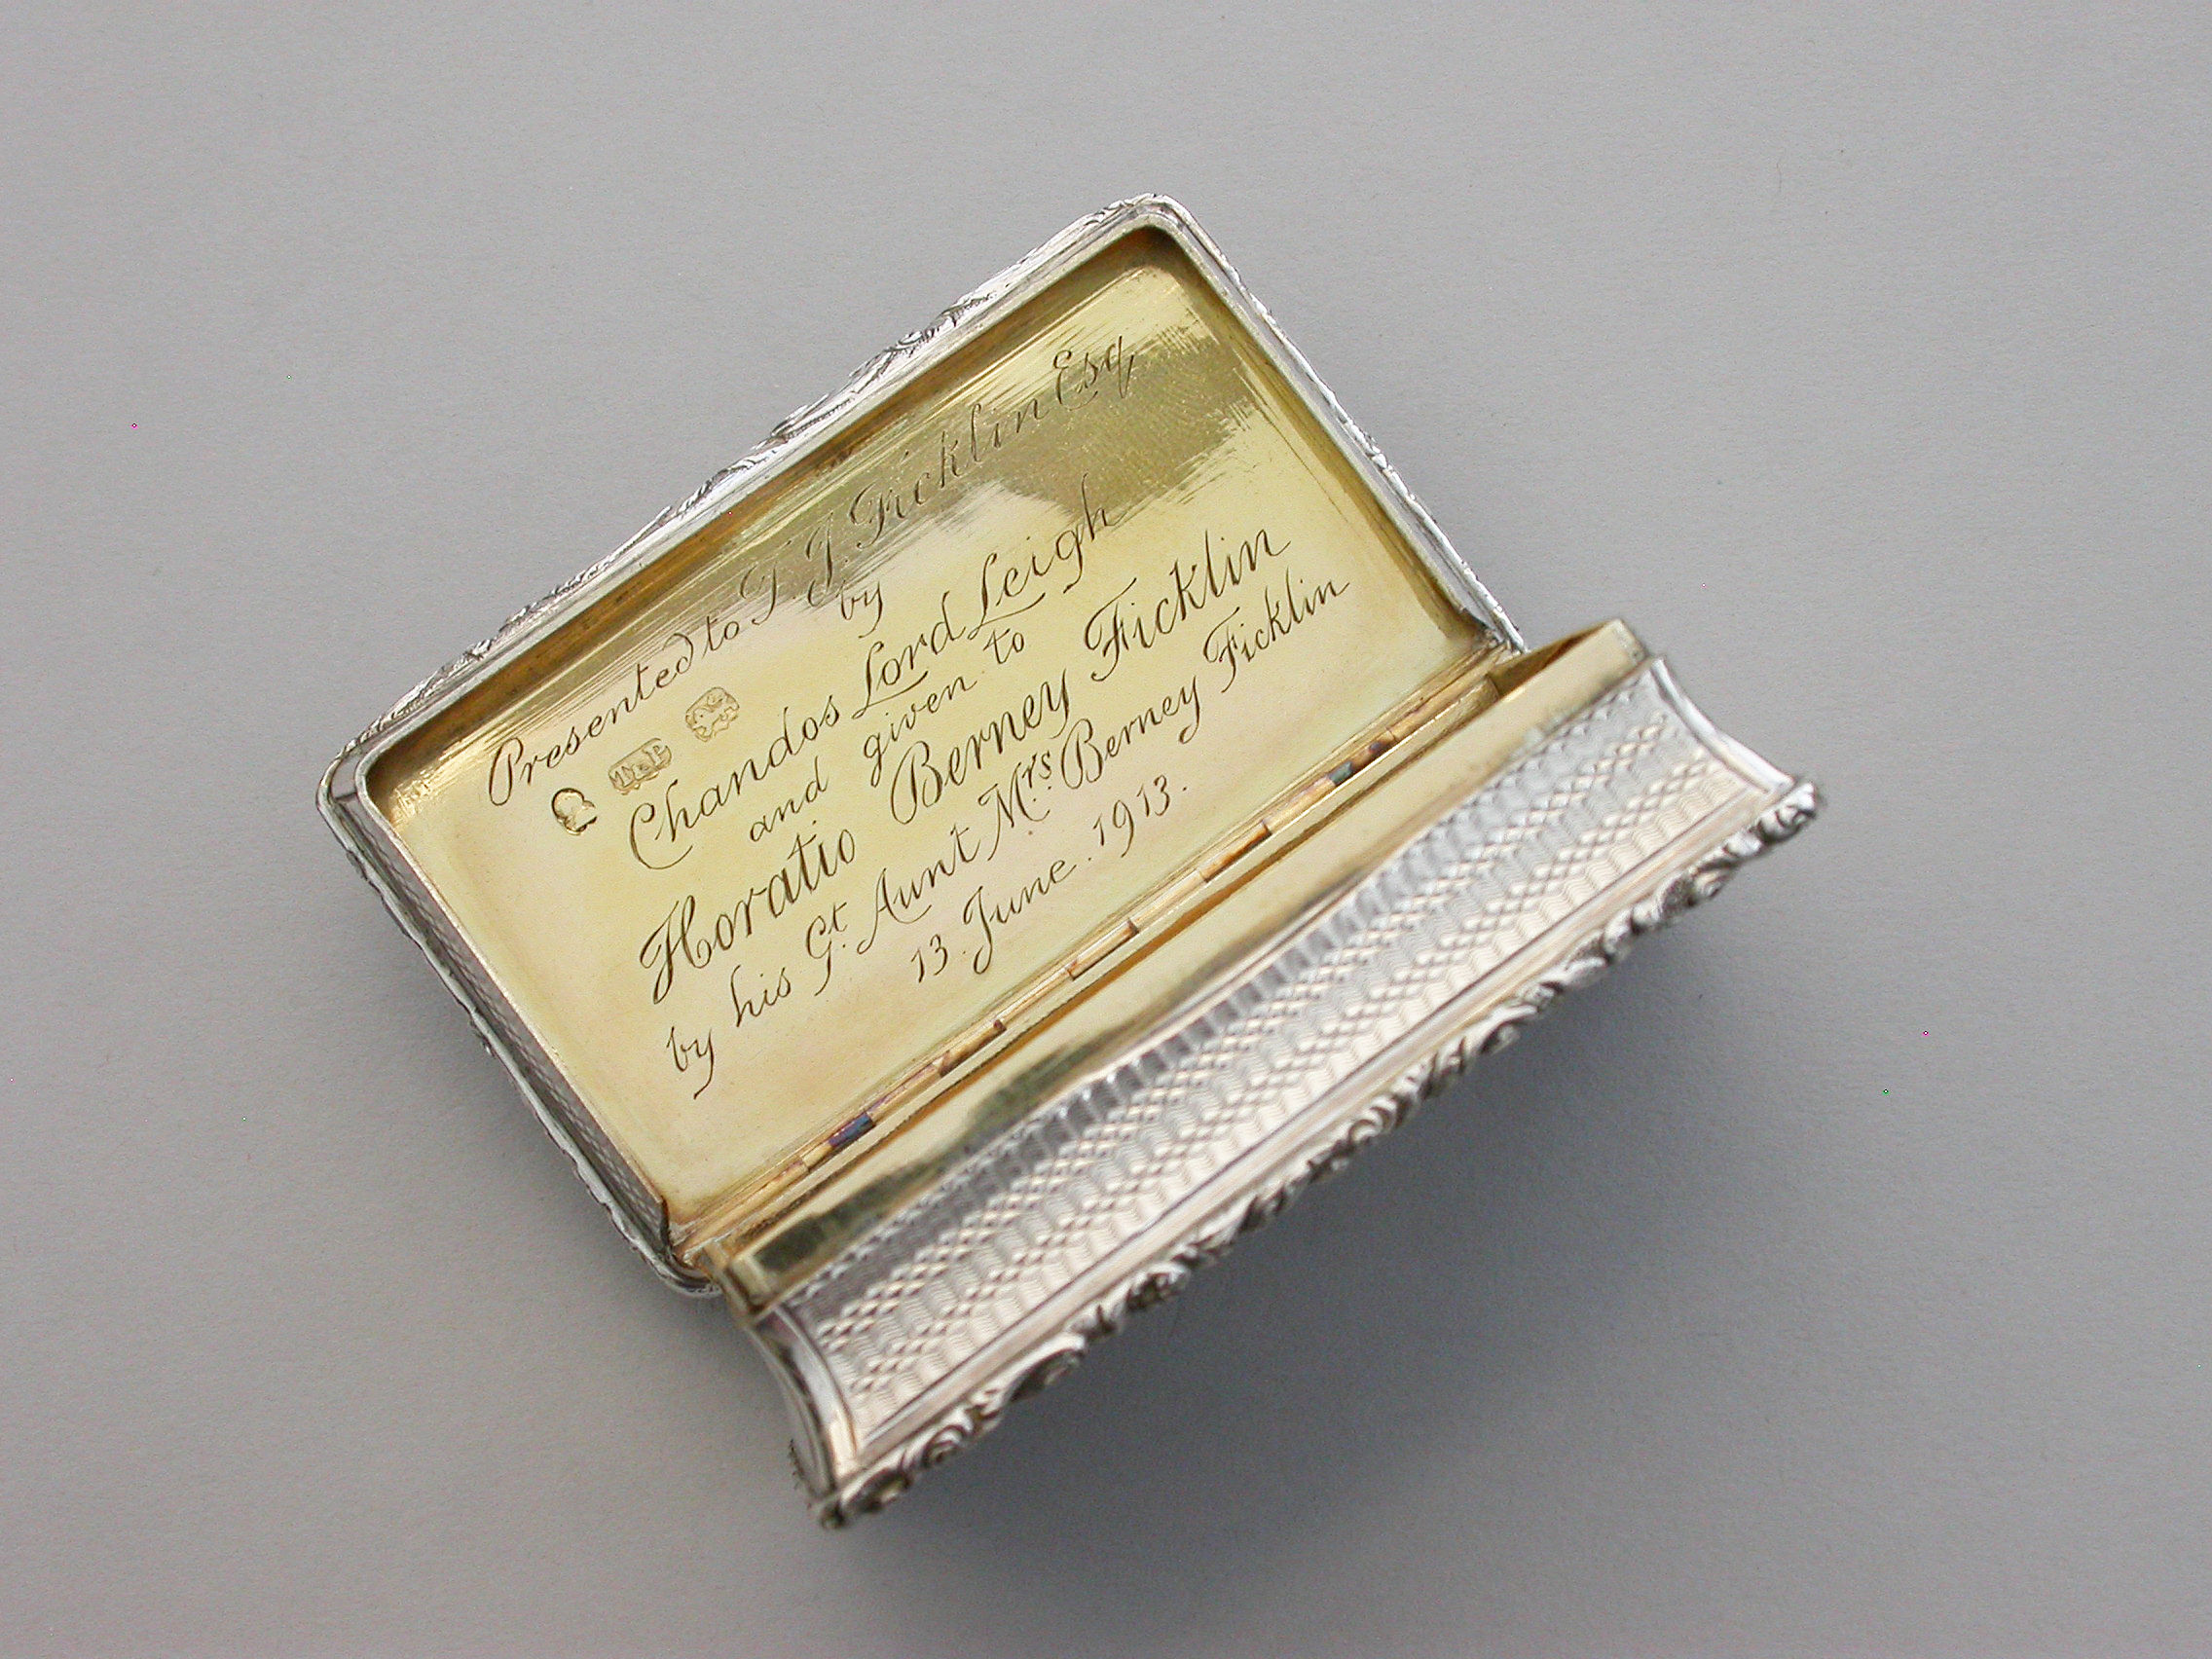 Presented to T. J. Ficklin Esq
by
Chandos Lord Leigh
and given to
Horatio Berney Ficklin
by his Gt. Aunt Mrs. Berney Ficklin
13. June. 1913.